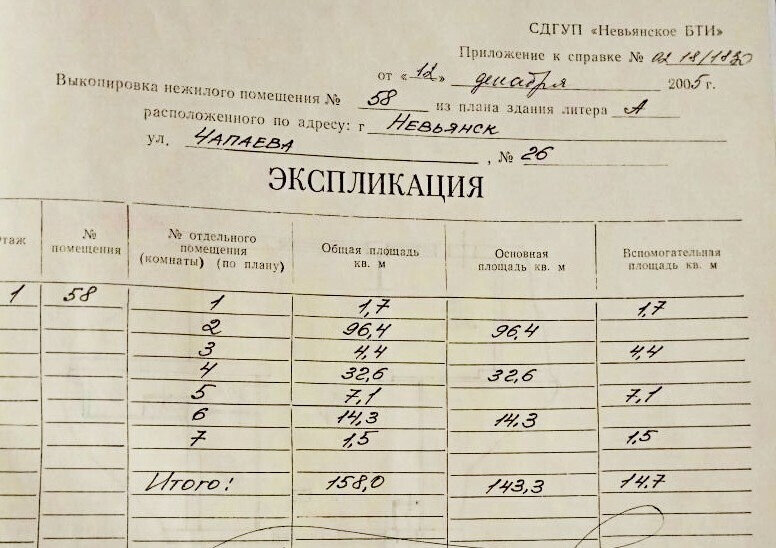 СДГУП «Невьянское БТИ»
Приложение к справке № 02.18/1830
от «12» декабря 2005 г.
Выкопировка нежилого помещения № 58 из плана здания литера А
расположенного по адресу: г Невьянск
ул. Чапаева, № 26
ЭКСПЛИКАЦИЯ
этаж № помещения № отдельного помещения (комнаты) (по плану) Общая площадь кв. м Основная площадь кв. м Вспомогательная площадь кв. м
1 58 1 1,7 1.7
2 96,4 96,4
3 4,4 4,4
4 32,6 32,6
5 7,1 7,1
6 14,3 14.3
7 1,5 1.5
Итого: 158,0 143,3 14.7